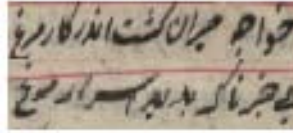 خواجه حیران گشت اندر کار مرغ
بی خبر ناگه بدید اسرار مرغ